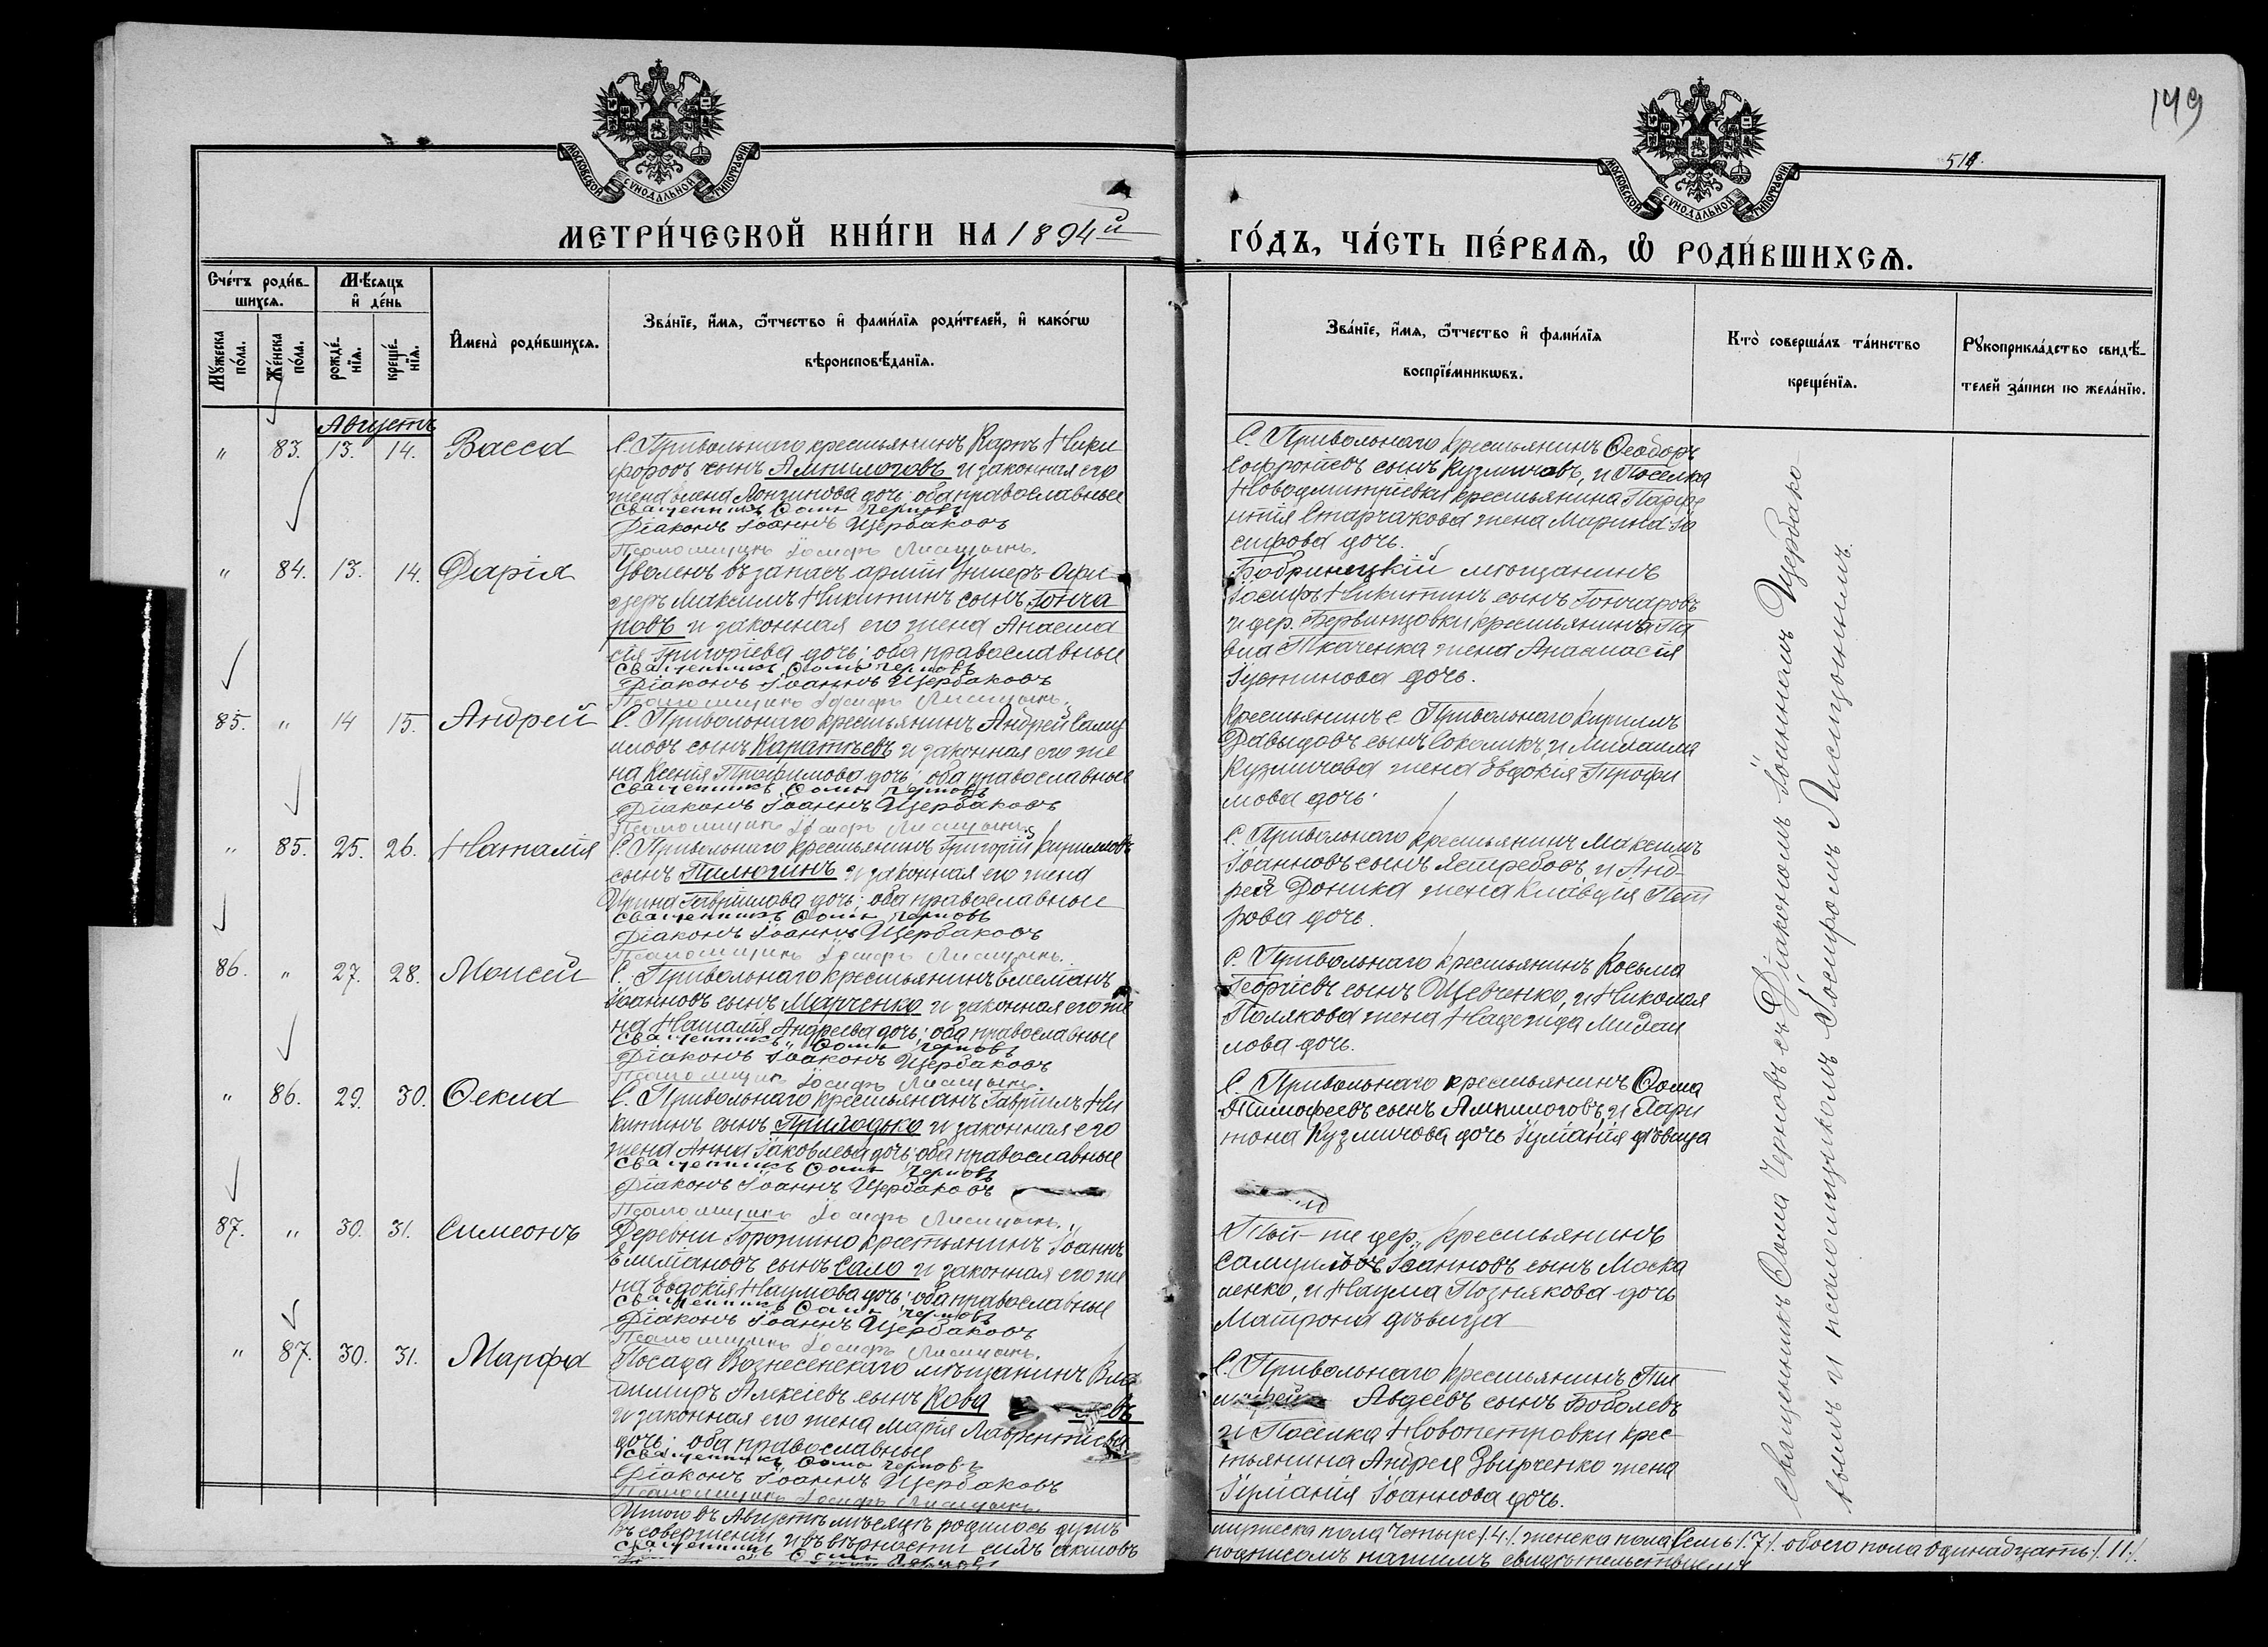 149
514.
МОСКОВСКОЙ СѴНОДАЛЬНОЙ ТИПОГРАФІИ
МОСКОВСКОЙ СѴНОДАЛЬНОЙ ТИПОГРАФІИ
МЕТРИ́ЧЕСКОЙ КНИ́ГИ НА 1894й
ГО́ДЪ, ЧА́СТЬ ПЕ́РВАѦ, Ѽ РОДИ́ВШИХСѦ.
Сче́тъ роди́в-
шихсѧ.
Мѣ́сяцъ
и҆ де́нь
Мꙋ́жеска
по́ла.
Же́нска
по́ла.
рожде́-
нїѧ.
креще́-
нїѧ.
И҆мена̀ роди́вшихсѧ.
Зва́нїе, и҆́мѧ, ѻ҆́тчество и҆ фами́лїѧ роди́телей, и҆ како́гѡ
вѣроисповѣ́данїѧ.
Зва́нїе, и҆́мѧ, ѻ҆́тчество и҆ фами́лїѧ
воспрїе́мникѡвъ.
Кто̀ соверша́лъ та́инство
креще́нїѧ.
Рꙋкоприкла́дство свидѣ́-
телей за́писи по жела́нїю.
Августъ
" 83. 13. 14. Васса
С. Привольнаго крестьянинъ Карпъ Ники
форовъ сынъ Ампилоговъ и законная его
жена Елена Лонгинова дочь; оба православные
Священникъ Ѳома Черновъ
Діаконъ Іоаннъ Щербаковъ
Псаломщикъ Іосифъ Лисицынъ.
С. Привольнаго крестьянинъ Ѳеодоръ
Софроніевъ сынъ Кузмичовъ, и Поселка
Новодмитріевки крестьянина Парфе
нтія Старчакова жена Марина Іо
сифова дочь.
" 84. 13. 14. Дарія
Уволенъ въ запасъ арміи Унтеръ-Офи
церъ Максимъ Никитинъ сынъ Гонча
ровъ и законная его жена Анаста
сія Григоріева дочь; оба православные
Священникъ Ѳома Черновъ
Діаконъ Іоаннъ Щербаковъ
Псаломщикъ Іосифъ Лисицынъ.
Бобринецкій мѣщанинъ
Іосифъ Никитинъ сынъ Гончаровъ
и дер. крестьянина Па
вла Ткаченка жена Анастасія
Іустинова дочь.
85. " 14 15. Андрей
С. Привольнаго крестьянинъ Андрей Саму
иловъ сынъ Каратѣевъ и законная его же
на Ксенія Трофимова дочь; оба православные
Священникъ Ѳома Черновъ
Діаконъ Іоаннъ Щербаковъ
Псаломщикъ Іосифъ Лисицынъ.
Крестьянинъ с. Привольнаго Кириллъ
Давыдовъ сынъ Соколикъ, и Михаила
Кузмичова жена Евдокія Трофи
мова дочь.
" 85. 25. 26. Наталія
С. Привольнаго крестьянинъ Григорій Кирилловъ
сынъ Пилюгинъ и законная его жена
Ирина Гавріилова дочь; оба православные
Священникъ Ѳома Черновъ
Діаконъ Іоаннъ Щербаковъ
Псаломщикъ Іосифъ Лисицынъ.
С. Привольнаго крестьянинъ Максимъ
Іоанновъ сынъ Ястребовъ, и Анд-
рея Доника жена Клавдія Пет
рова дочь.
86. " 27. 28. Моисей
С. Привольнаго крестьянинъ
Іоанновъ сынъ Марченко и законная его же
на Наталія Андреева дочь; оба православные
Священникъ Ѳома Черновъ
Діаконъ Іоаннъ Щербаковъ
Псаломщикъ Іосифъ Лисицынъ.
С. Привольнаго крестьянинъ Косьма
Георгіевъ сынъ Шевченко, и Николая
Полякова жена Надежда Михаи
лова дочь.
" 86. 29. 30. Ѳекла
С. Привольнаго крестьянинъ Гавріилъ Ни
китинъ сынъ Приходько и законная его
жена Анна Іаковлева дочь; оба православные
Священникъ Ѳома Черновъ
Діаконъ Іоаннъ Щербаковъ
Псаломщикъ Іосифъ Лисицынъ.
С. Привольнаго крестьянинъ Ѳома
Тимофеевъ сынъ Ампилоговъ, и Хари
тона Кузмичова дочь Іуліанія дѣвица
87. " 30. 31. Симеонъ
Деревни Горожино крестьянинъ Іоаннъ
сынъ Сало и законная его же
на Евдокія Наумова дочь; оба православные
Священникъ Ѳома Черновъ
Діаконъ Іоаннъ Щербаковъ
Псаломщикъ Іосифъ Лисицынъ.
Той-же дер., крестьянинъ
Самуилъ Іоанновъ сынъ Моска
ленко, и Наума Познякова дочь
Матрона дѣвица
" 87. 30. 31. Марфа
Посада Вознесенскаго мѣщанинъ Вла
димиръ Алексіевъ сынъ Кова
и законная его жена Марія Лаврентіева
дочь; оба православные
Священникъ Ѳома Черновъ
Діаконъ Іоаннъ Щербаковъ
Псаломщикъ Іосифъ Лисицынъ.
С. Привольнаго крестьянинъ Ти
мофей Авдеевъ сынъ Боболевъ
и Поселка Новопетровки крес-
тьянина Андрея Звирченко жена
Іуліанія Іоаннова дочь.
Священникъ Ѳома Черновъ съ Діакономъ Іоанномъ Щербако-
вымъ и псаломщикомъ Іосифомъ Лисицынымъ.
Итого въ Августѣ мѣсяцѣ родилось душъ
мужеска пола четыре /.4./. женска пола семь /.7./. обоего пола одинадцать /.11./.
Въ совершеніи и въ вѣрности сихъ актовъ
подписомъ нашимъ свидѣтельствуемъ
Священникъ Ѳома Черновъ